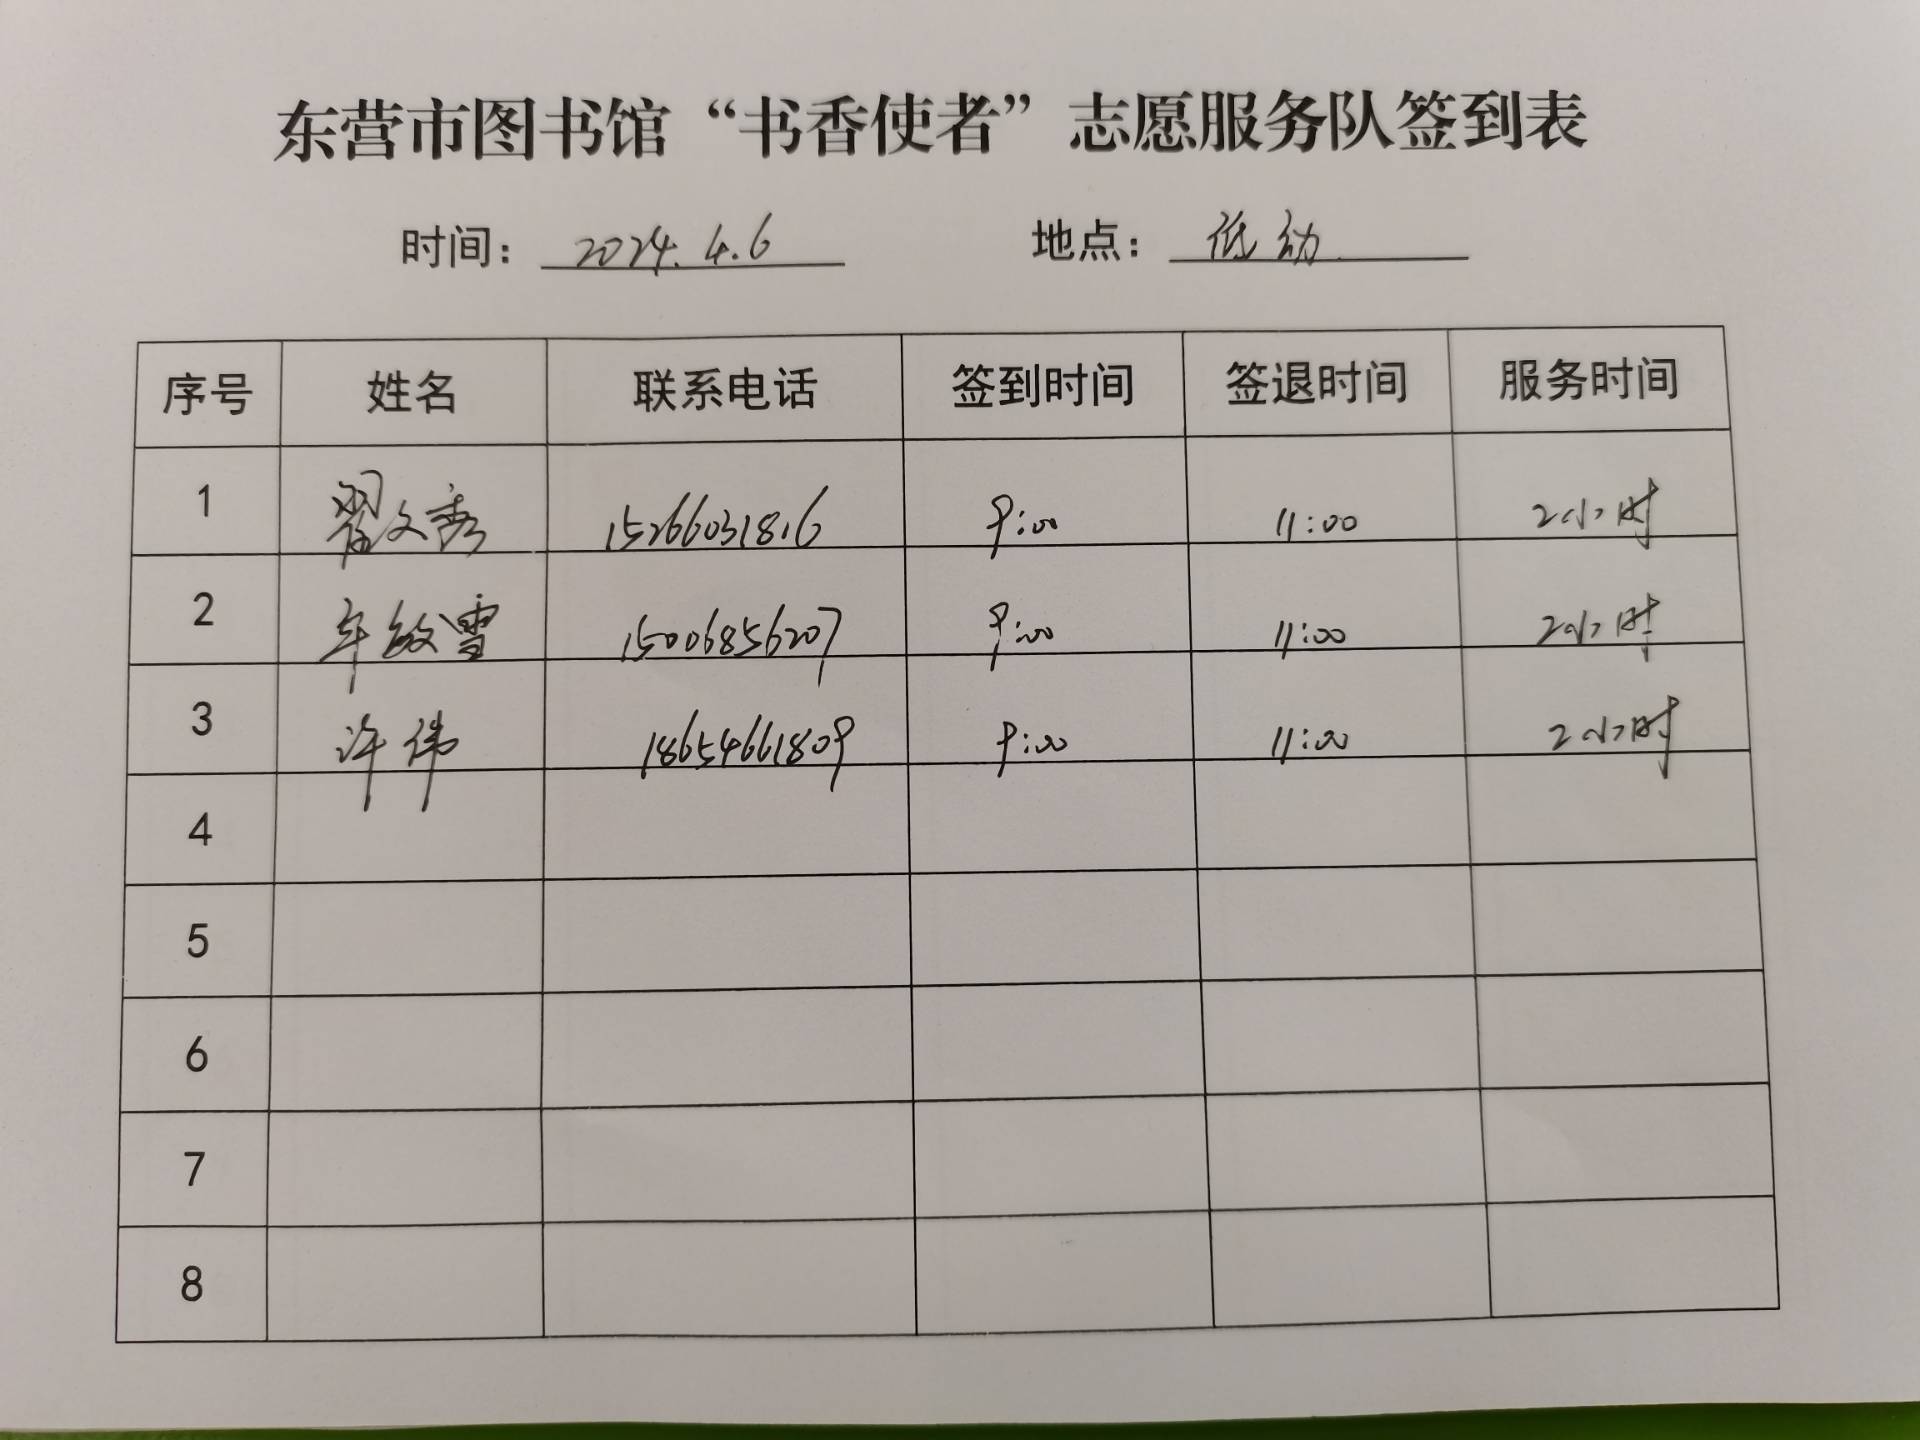 东营市图书馆“书香使者”志愿服务队签到表
时间： 2024.4.6 地点： 低幼
序号 姓名 联系电话 签到时间 签退时间 服务时间
1 翟文秀 15266031816 9:00 11:00 2小时
2 年敏雪 15006856207 9:00 11:00 2小时
3 许伟 18654661809 9:00 11:00 2小时
4
5
6
7
8